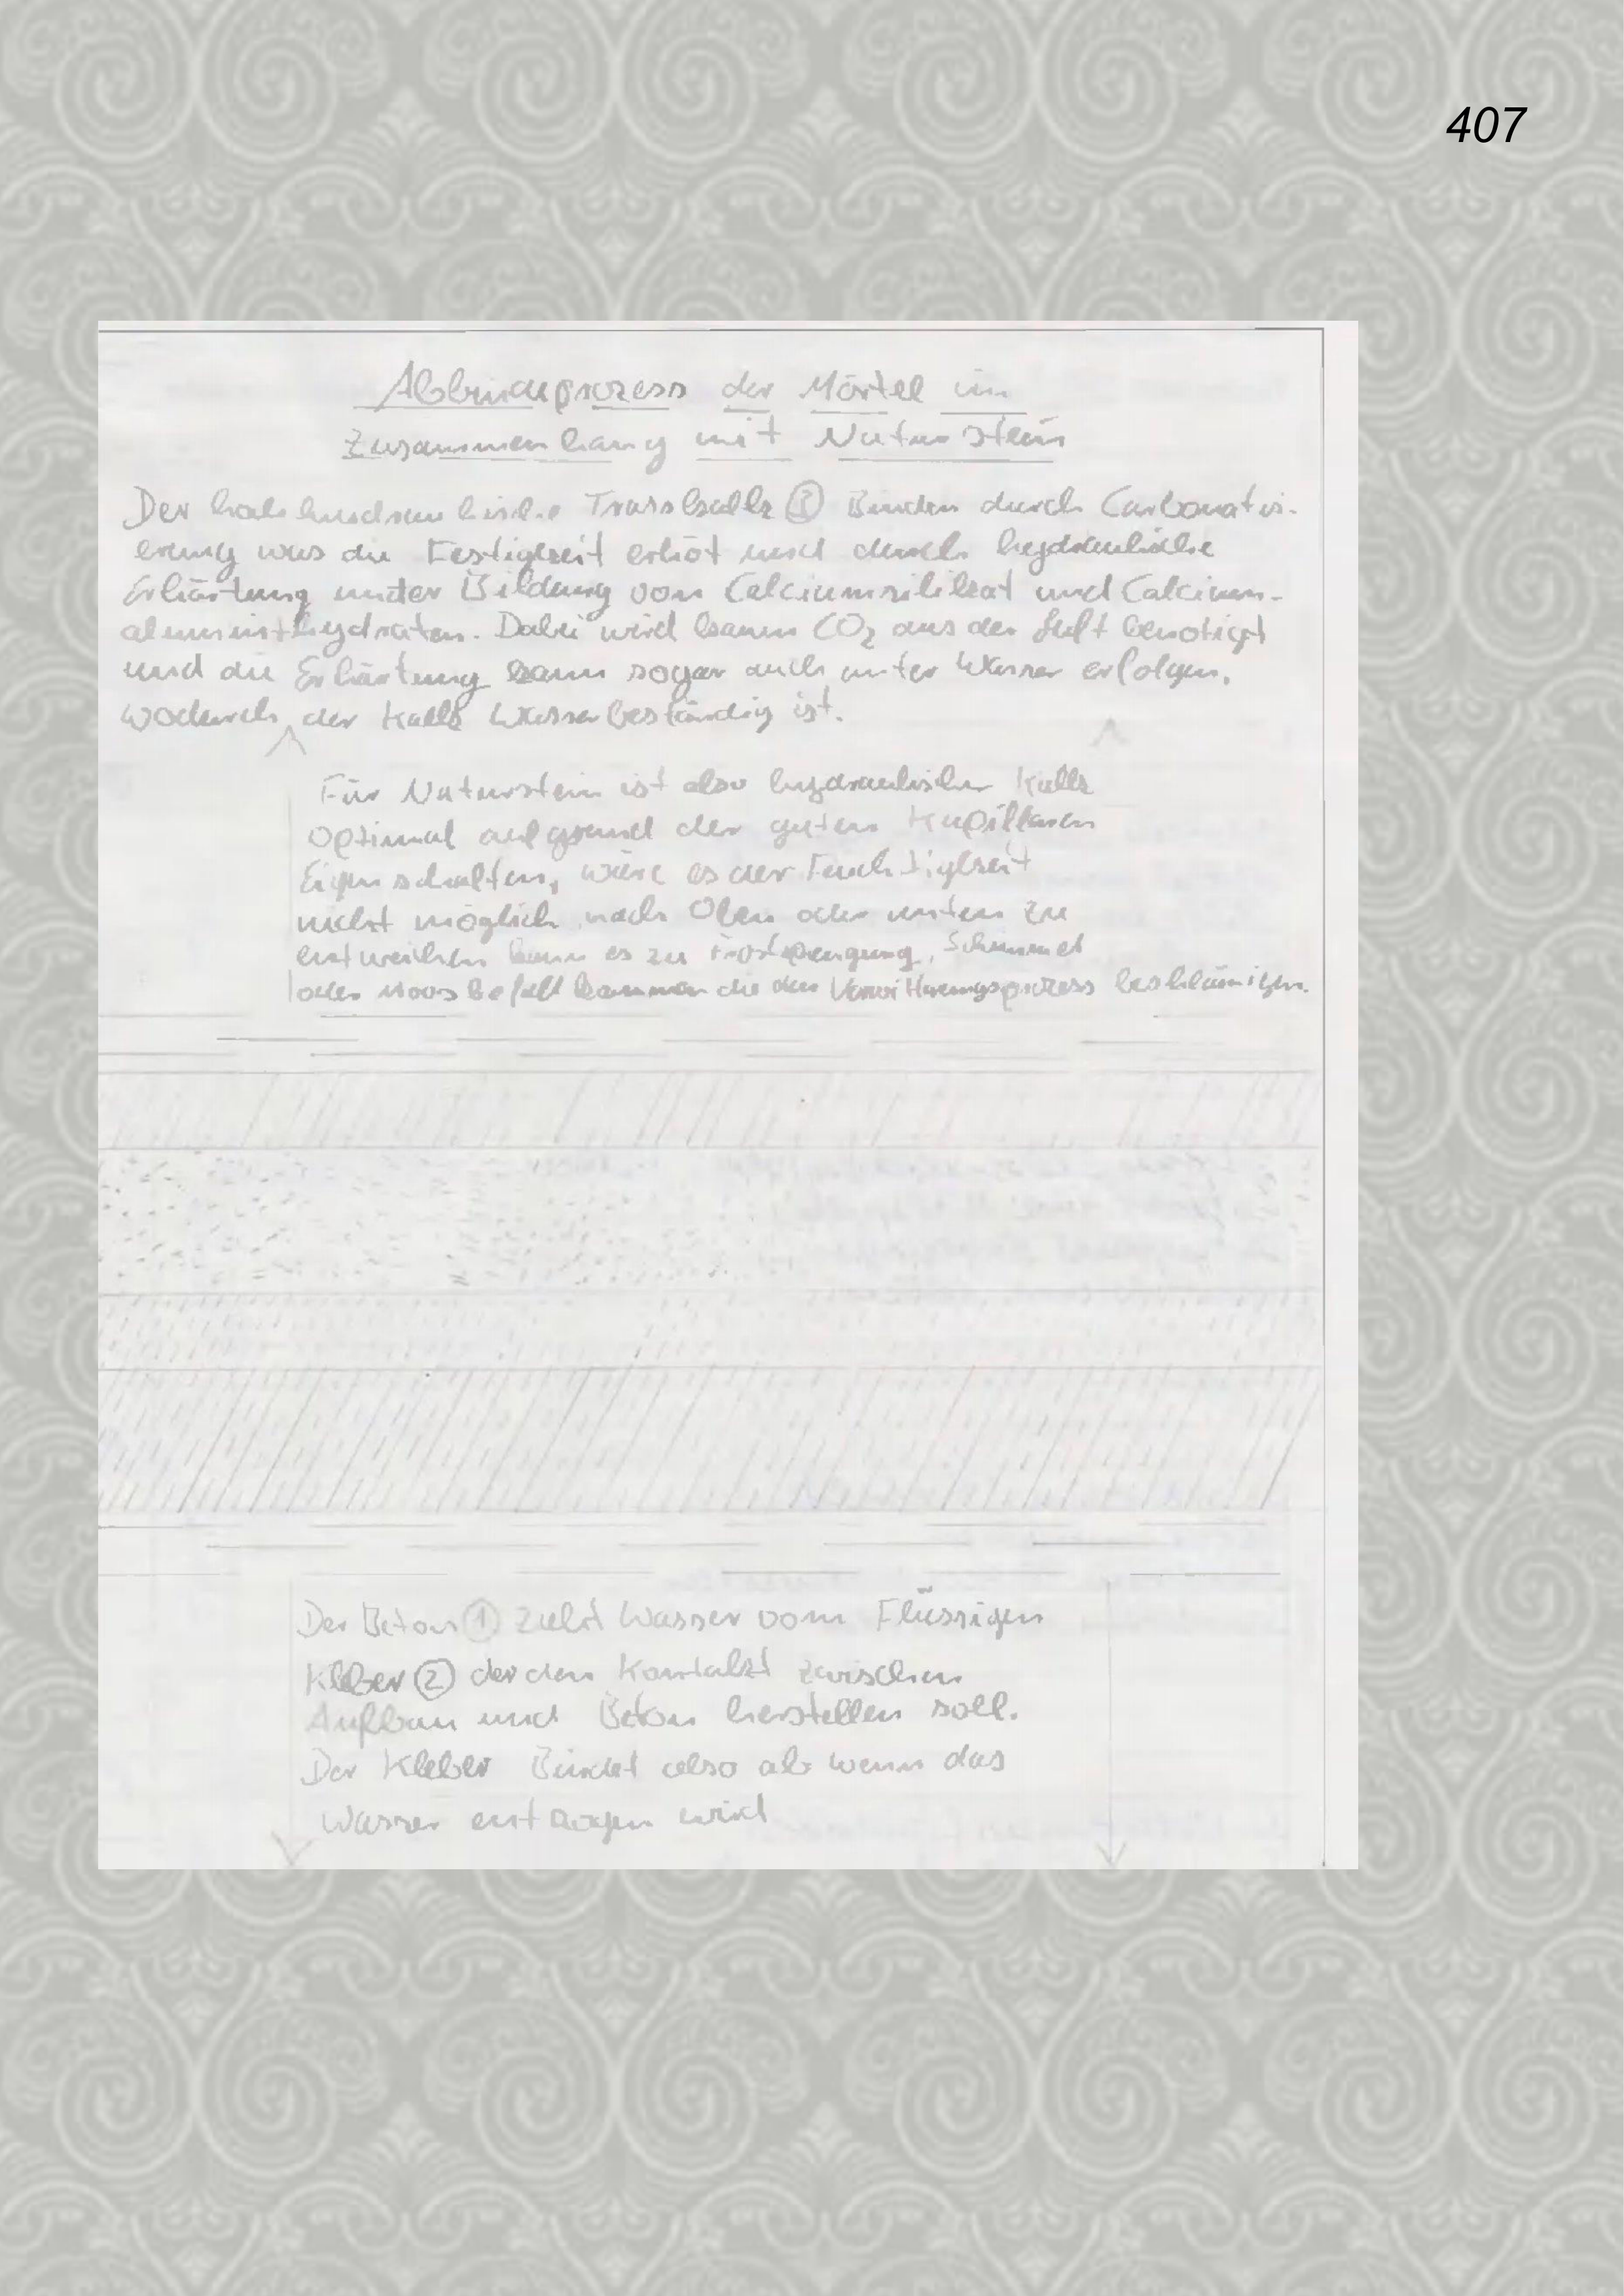 407
Abbindeprozess der Mörtel im
Zusammenhang mit Naturstein
Der Trasskalk Binden durch Carbonatis-
erung was die Festigkeit erhöt und durch hydraulische
Erhärtung unter Bildung von Calciumsilikat und Calcium-
aluminathydraten. Dabei wird kaum CO2 aus der Luft benötigt
und die Erhärtung kann sogar auch unter Wasser erfolgen,
wodurch der Kalk Wasserbeständig ist.
Für Naturstein ist also hydraulischer Kalk
Optimal aufgrund der guten Kapillaren
Eigenschaften, wäre es der Feuchtigkeit
nicht möglich nach Oben oder unten zu
entweichen kann es zu Frostsprengung, Schimmel
oder Moosbefall kommen die den Verwitterungsprozess
Der Beton ① zieht Wasser vom Flüssigen
Kleber ② der den Kontakt zwischen
Aufbau und Beton herstellen soll.
Der Kleber Bindet also ab wenn das
Wasser entzogen wird